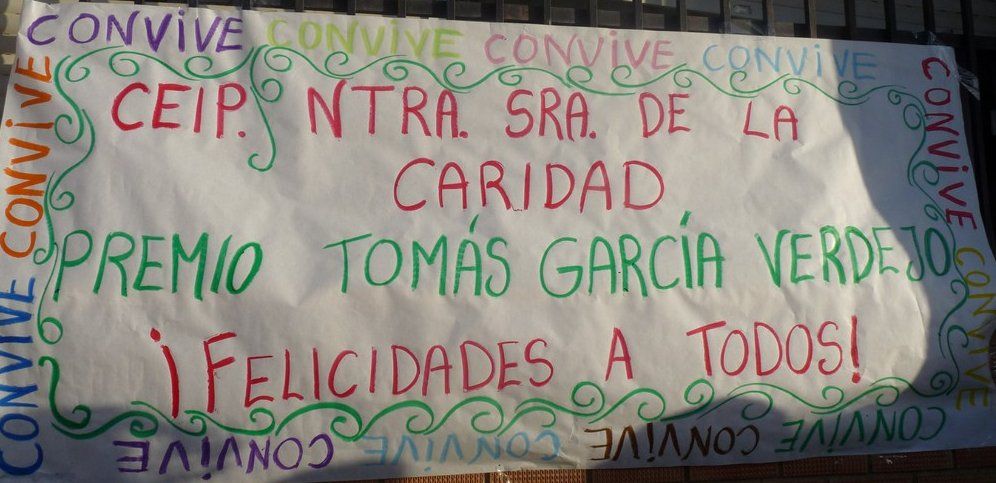 CONVIVE CONVIVE CONVIVE CONVIVE
CEIP. NTRA. SRA. DE LA
CARIDAD
PREMIO TOMÁS GARCÍA VERDEJO
¡FELICIDADES A TODOS!
CONVIVE CONVIVE
CONVIVE CONVIVE CONVIVE CONVIVE
CONVIVE CONVIVE